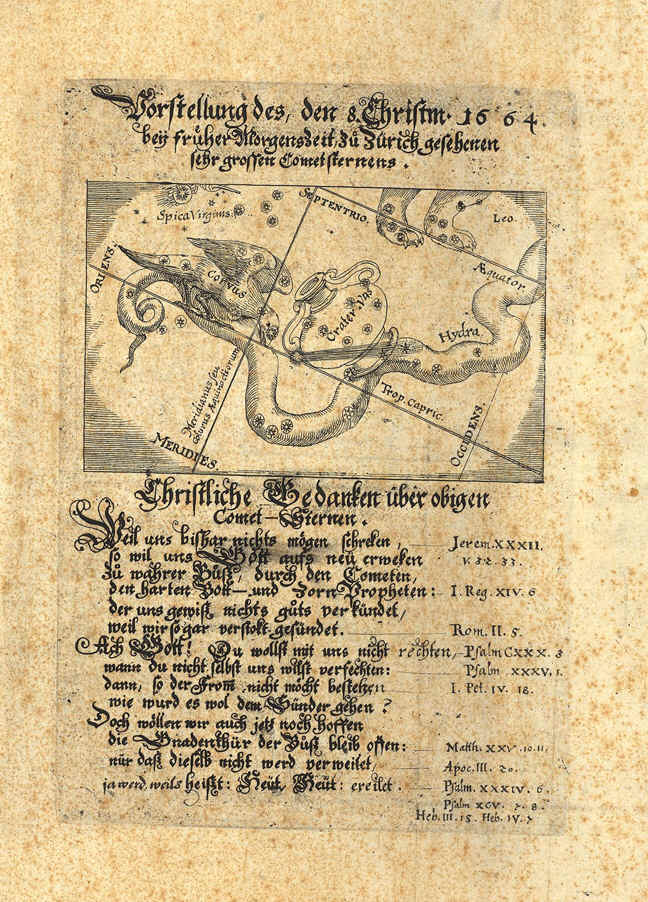 Vorstellung des, den 8. Christm. 1664.
bey früher Morgenszeit, zů Zürich gesehenen
sehr grossen Cometsternens.
SEPTENTRIO.
Spica Virginis.
Leo.
ORIENS.
Æquator.
Corvus
Crater. Vas
Hydra
Meridianus seu
colurus Æquinoctiorum
Trop. Capric.
MERIDIES.
OCCIDENS.
Christliche Gedanken über obigen
Comet-Sternen.
Weil uns bishar nichts mögen schreken, Jerem. XXXII.
so wil uns Gott aufs neü erweken v. 32. 33.
zů wahrer Bůß, durch den Cometen,
den harten Bott- und Zorn Propheten: I. Reg. XIV. 6
der uns gewiß nichts gůts verkündet,
weil wir so gar verstokt gesündet. Rom. II. 5.
Ach Gott! Du wollst mit uns nicht rechten, Psalm CXXX. 3
wann du nicht selbst uns wilst verfechten: Psalm XXXV. 1.
dann, so der From nicht möcht bestehen I. Pet. IV. 18.
wie wurd es wol dem Sünder gehen?
Doch wöllen wir auch jetz noch hoffen
die Gnadenthür der Bůß bleib offen: Matth. XXV. 10. 11.
nur daß dieselb nicht werd verweilet, Apoc. III. 20.
ja werd, weils heißt: Heüt, Heüt: ereilet. Psalm. XXXIV. 6.
Psalm XCV. 7. 8.
Heb. III. 15. Heb. IV. 7